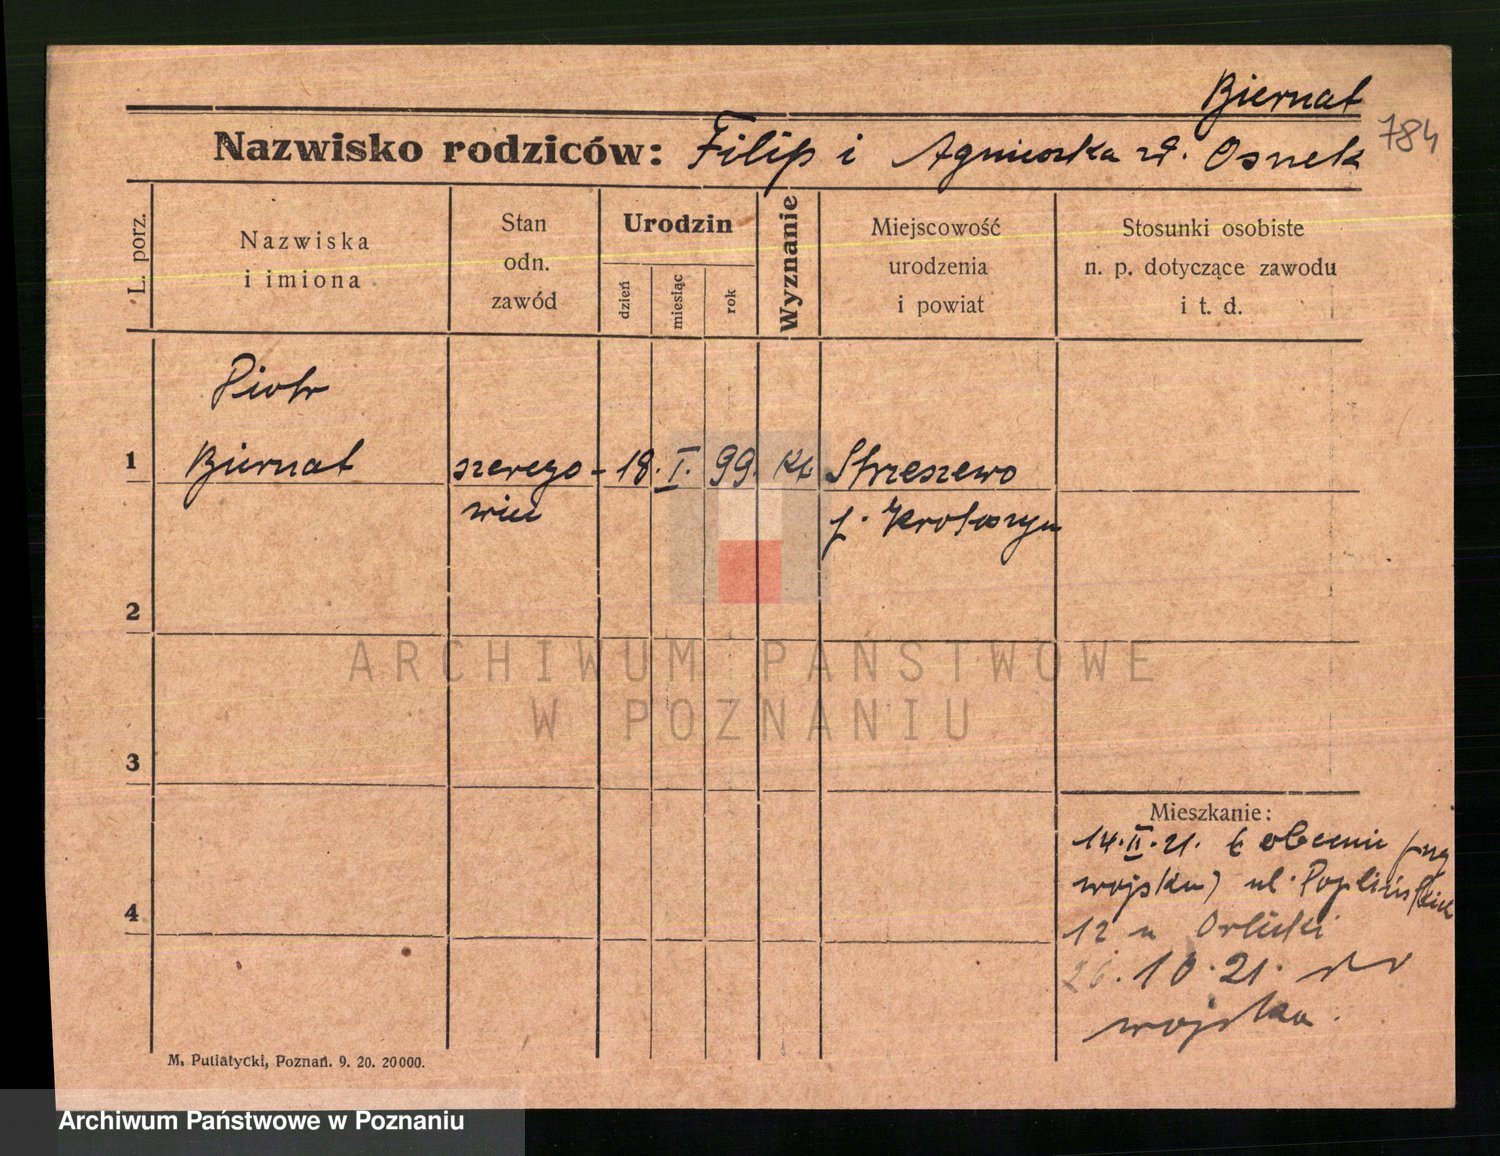 Biernat
784
Nazwisko rodziców: Filip i Agnieszka zd. Osnek
L. porz.
Nazwiska
i imiona
Stan
odn.
zawód
Urodzin
dzień
miesiąc
rok
Wyznanie
Miejscowość
urodzenia
i powiat
Stosunki osobiste
n. p. dotyczące zawodu
i t. d.
Piotr
1 Biernat szerego- 18. I. 99. kt Strzeszewo
wiec p. Krotoszyn
2
ARCHIWUM PAŃSTWOWE
W POZNANIU
3
Mieszkanie:
14.II.21. obecnie przy
wojsku) ul. Poplińskich
4
12 u Orlicki
26.10.21. do
wojska.
M. Putiatycki, Poznań. 9. 20. 20000.
Archiwum Państwowe w Poznaniu